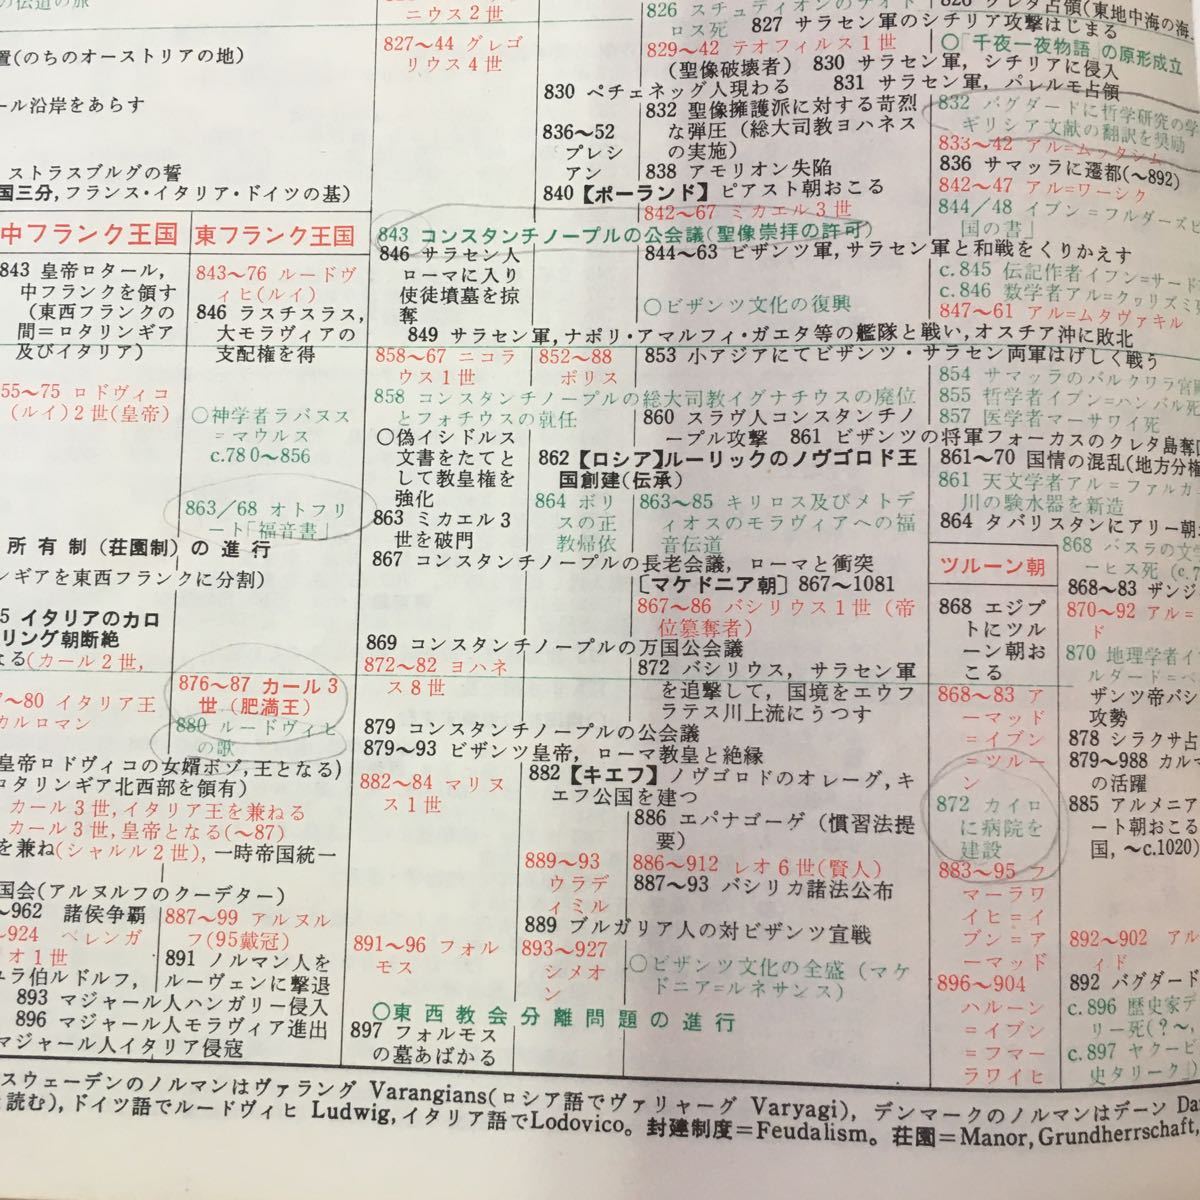 の伝道の旅
ニウス2世
827〜44 グレゴ
リウス4世
826 スチュディオンのテオド
ロス死
827 サラセン軍のシチリア攻撃はじまる
829〜42 テオフィルス1世
(聖像破壊者)
830 サラセン軍, シチリアに侵入
831 サラセン軍, パレルモ占領
830 ペチェネッグ人現わる
832 聖像擁護派に対する苛烈
な弾圧(総大司教ヨハネス
の実施)
836〜52
プレシ
アン
838 アモリオン失陥
840【ポーランド】ピアスト朝おこる
842〜67 ミカエル3世
828 クレタ占領(東地中海の海
○「千夜一夜物語」の原形成立
832 バグダードに哲学研究の学
ギリシア文献の翻訳を奨励
833〜42 アル=ムッタシム
836 サマッラに遷都(〜892)
842〜47 アル=ワーシク
844/48 イブン=フルダーズビ
国の書」
置(のちのオーストリアの地)
ール沿岸をあらす
ストラスブルグの誓
国三分, フランス・イタリア・ドイツの基)
中フランク王国
東フランク王国
843 皇帝ロタール,
中フランクを領す
(東西フランクの
間=ロタリンギア
及びイタリア)
55〜75 ロドヴィコ
(ルイ)2世(皇帝)
843〜76 ルードヴ
ィヒ(ルイ)
846 ラスチスラス,
大モラヴィアの
支配権を得
○神学者ラバヌス
=マウルス
c.780〜856
863/68 オトフリ
ート「福音書」
843 コンスタンチノープルの公会議(聖像崇拝の許可)
846 サラセン人
ローマに入り
使徒墳墓を掠
奪
844〜63 ビザンツ軍, サラセン軍と和戦をくりかえす
○ビザンツ文化の復興
c.845 伝記作者イブン=サード
c.846 数学者アル=クヮリズミ
847〜61 アル=ムタヴァキル
849 サラセン軍, ナポリ・アマルフィ・ガエタ等の艦隊と戦い, オスチア沖に敗北
858〜67 ニコラ
ウス1世
852〜88
ボリス
853 小アジアにてビザンツ・サラセン両軍はげしく戦う
854 サマッラのバルクワラ宮殿
855 哲学者イブン=ハンバル死
857 医学者マーサワイ死
858 コンスタンチノープルの総大司教イグナチウスの廃位
とフォチウスの就任
860 スラヴ人コンスタンチノ
ープル攻撃
861 ビザンツの将軍フォーカスのクレタ島奪回
○偽イシドルス
文書をたてと
して教皇権を
強化
862【ロシア】ルーリックのノヴゴロド王
国創建(伝承)
861〜70 国情の混乱(地方分権
861 天文学者アル=ファルガ
川の験水器を新造
864 ボリ
スの正
教帰依
863〜85 キリロス及びメトデ
ィオスのモラヴィアへの福
音伝道
863 ミカエル3
世を破門
864 タバリスタンにアリー朝
867 コンスタンチノープルの長老会議, ローマと衝突
[マケドニア朝]867〜1081
867〜86 バシリウス1世(帝
位簒奪者)
ツルーン朝
868 エジプ
トにツル
ーン朝お
こる
868 バスラの文
ーヒス死(c.7
868〜83 ザンジ
870〜92 アル=
ド
870 地理学者イ
所有制(荘園制)の進行
ンギアを東西フランクに分割)
5 イタリアのカロ
リング朝断絶
なる(カール2世,
7〜80 イタリア王
カルロマン
876〜87 カール3
世(肥満王)
880 ルードヴィヒ
の歌
869 コンスタンチノープルの万国公会議
872〜82 ヨハネ
ス8世
872 バシリウス, サラセン軍
を追撃して, 国境をエウフ
ラテス川上流にうつす
868〜83 ア
ーマッド
=イブン
=ツルー
ン
ザンツ帝バシ
攻勢
878 シラクサ占
879〜988 カルマ
の活躍
879 コンスタンチノープルの公会議
879〜93 ビザンツ皇帝, ローマ教皇と絶縁
皇帝ロドヴィコの女婿ボゾ, 王となる)
ロタリンギア北西部を領有)
カール3世, イタリア王を兼ねる
カール3世, 皇帝となる(〜87)
を兼ね(シャルル2世), 一時帝国統一
882〜84 マリヌ
ス1世
882【キエフ】ノヴゴロドのオレーグ, キ
エフ公国を建つ
886 エパナゴーゲ(慣習法提
要)
872 カイロ
に病院を
建設
885 アルメニア
ート朝おこる
国, 〜c.1020)
889〜93
ウラデ
ィミル
886〜912 レオ6世(賢人)
887〜93 バシリカ諸法公布
883〜95 フ
マーラワ
イヒ=イ
ブン=ア
ーマッド
国会(アルヌルフのクーデター)
〜962 諸侯争覇
〜924 ベレンガ
オ1世
ュラ伯ルドルフ,
887〜99 アルヌル
フ(95戴冠)
891 ノルマン人を
ルーヴェンに撃退
889 ブルガリア人の対ビザンツ宣戦
891〜96 フォル
モス
893〜927
シメオ
ン
○ビザンツ文化の全盛(マケ
ドニア=ルネサンス)
892〜902 アル
ィド
892 バグダード
893 マジャール人ハンガリー侵入
896 マジャール人モラヴィア進出
マジャール人イタリア侵寇
○東西教会分離問題の進行
897 フォルモス
の墓あばかる
896〜904
ハルーン
=イブン
=フマー
ラワイヒ
c.896 歴史家デ
リー死(?〜
c.897 ヤクービ
史タリーク」)
スウェーデンのノルマンはヴァラング Varangians(ロシア語でヴァリャーグ Varyagi), デンマークのノルマンはデーン Da
と読む), ドイツ語でルードヴィヒ Ludwig, イタリア語でLodovico。封建制度=Feudalism。荘園=Manor, Grundherrschaft,